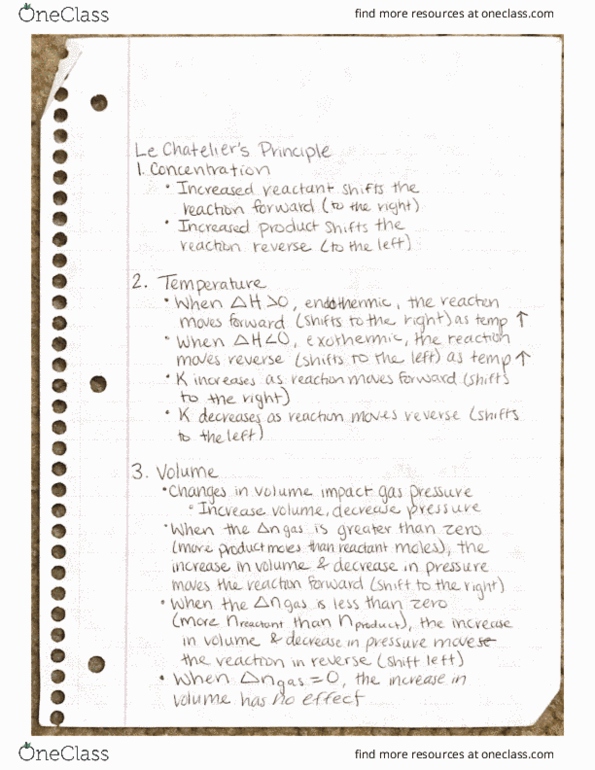 OneClass
find more resources at oneclass.com
Le Chatelier's Principle
1. Concentration
• Increased reactant shifts the
reaction forward (to the right)
• Increased product shifts the
reaction reverse (to the left)
2. Temperature
• When △H>0, endothermic, the reaction
moves forward (shifts to the right) as temp ↑
• When △H<0, exothermic, the reaction
moves reverse (shifts to the left) as temp ↑
• K increases as reaction moves forward (shifts
to the right)
• K decreases as reaction moves reverse (shifts
to the left)
3. Volume
• Changes in volume impact gas pressure
◦ Increase volume, decrease pressure
• When the △ngas is greater than zero
(more product moles than reactant moles), the
increase in volume & decrease in pressure
moves the reaction forward (shift to the right)
• When the △ngas is less than zero
(more nreactant than nproduct), the increase
in volume & decrease in pressure moves
the reaction in reverse (shift left)
• When △ngas=0, the increase in
volume has no effect
OneClass
find more resources at oneclass.com